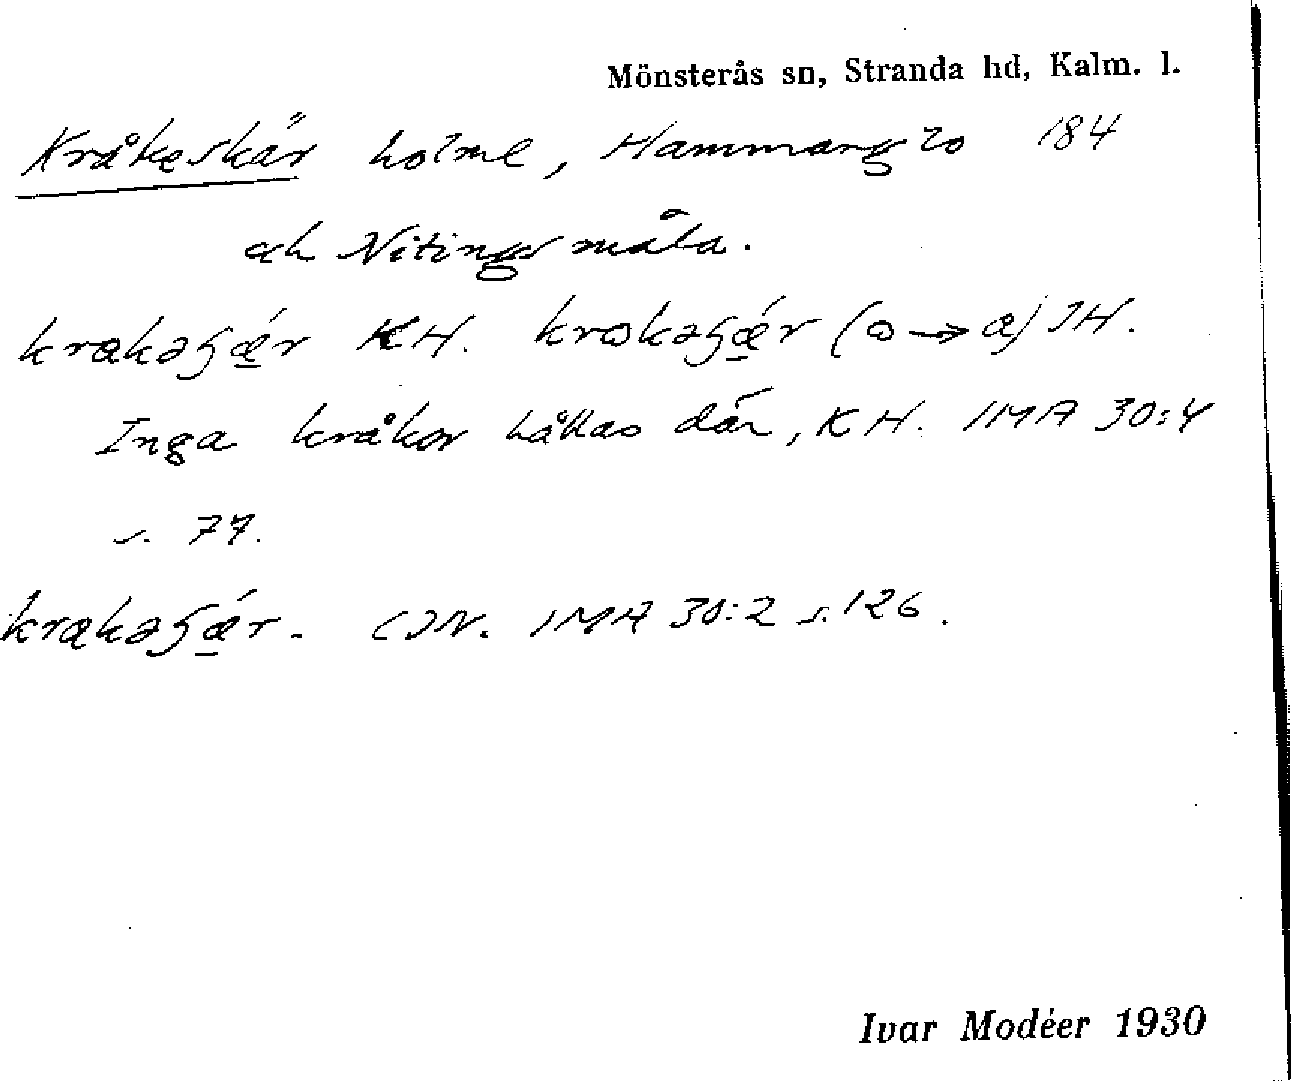 Mönsterås sn, Stranda hd, Kalm. l.
Kråkeskär holme, Hammarglo 184
och Nötingsmåla.
krakəʂǽr KH. krokəʂǽr (o→a) JH.
Inga kråkor hållas där, KH. IMA 30:4
s. 77.
krakəʂǽr. CJN. IMA 30:2 s. 126.
Ivar Modéer 1930